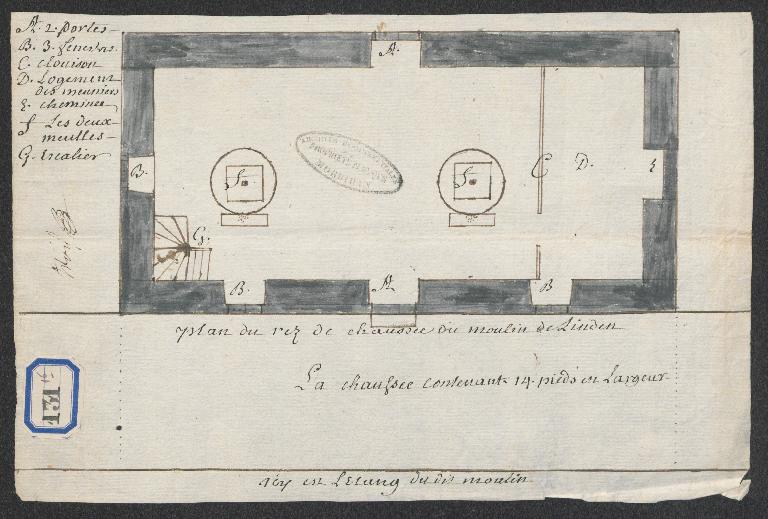 A. 2. portes
B. 3. fenetres
C. clouison
D. Logement
des meuniers
E. cheminee
F Les deux
meulles
G. Escalier
A.
B.
F.
F.
C
D.
E
G.
B.
A
B
ARCHIVES DEPARTEMENTALES
MORBIHAN
plan du rez de chaussée du moulin de Linden
La chaussée contenant 14. pieds en Largeur
131
icy est L'Etang du dit moulin